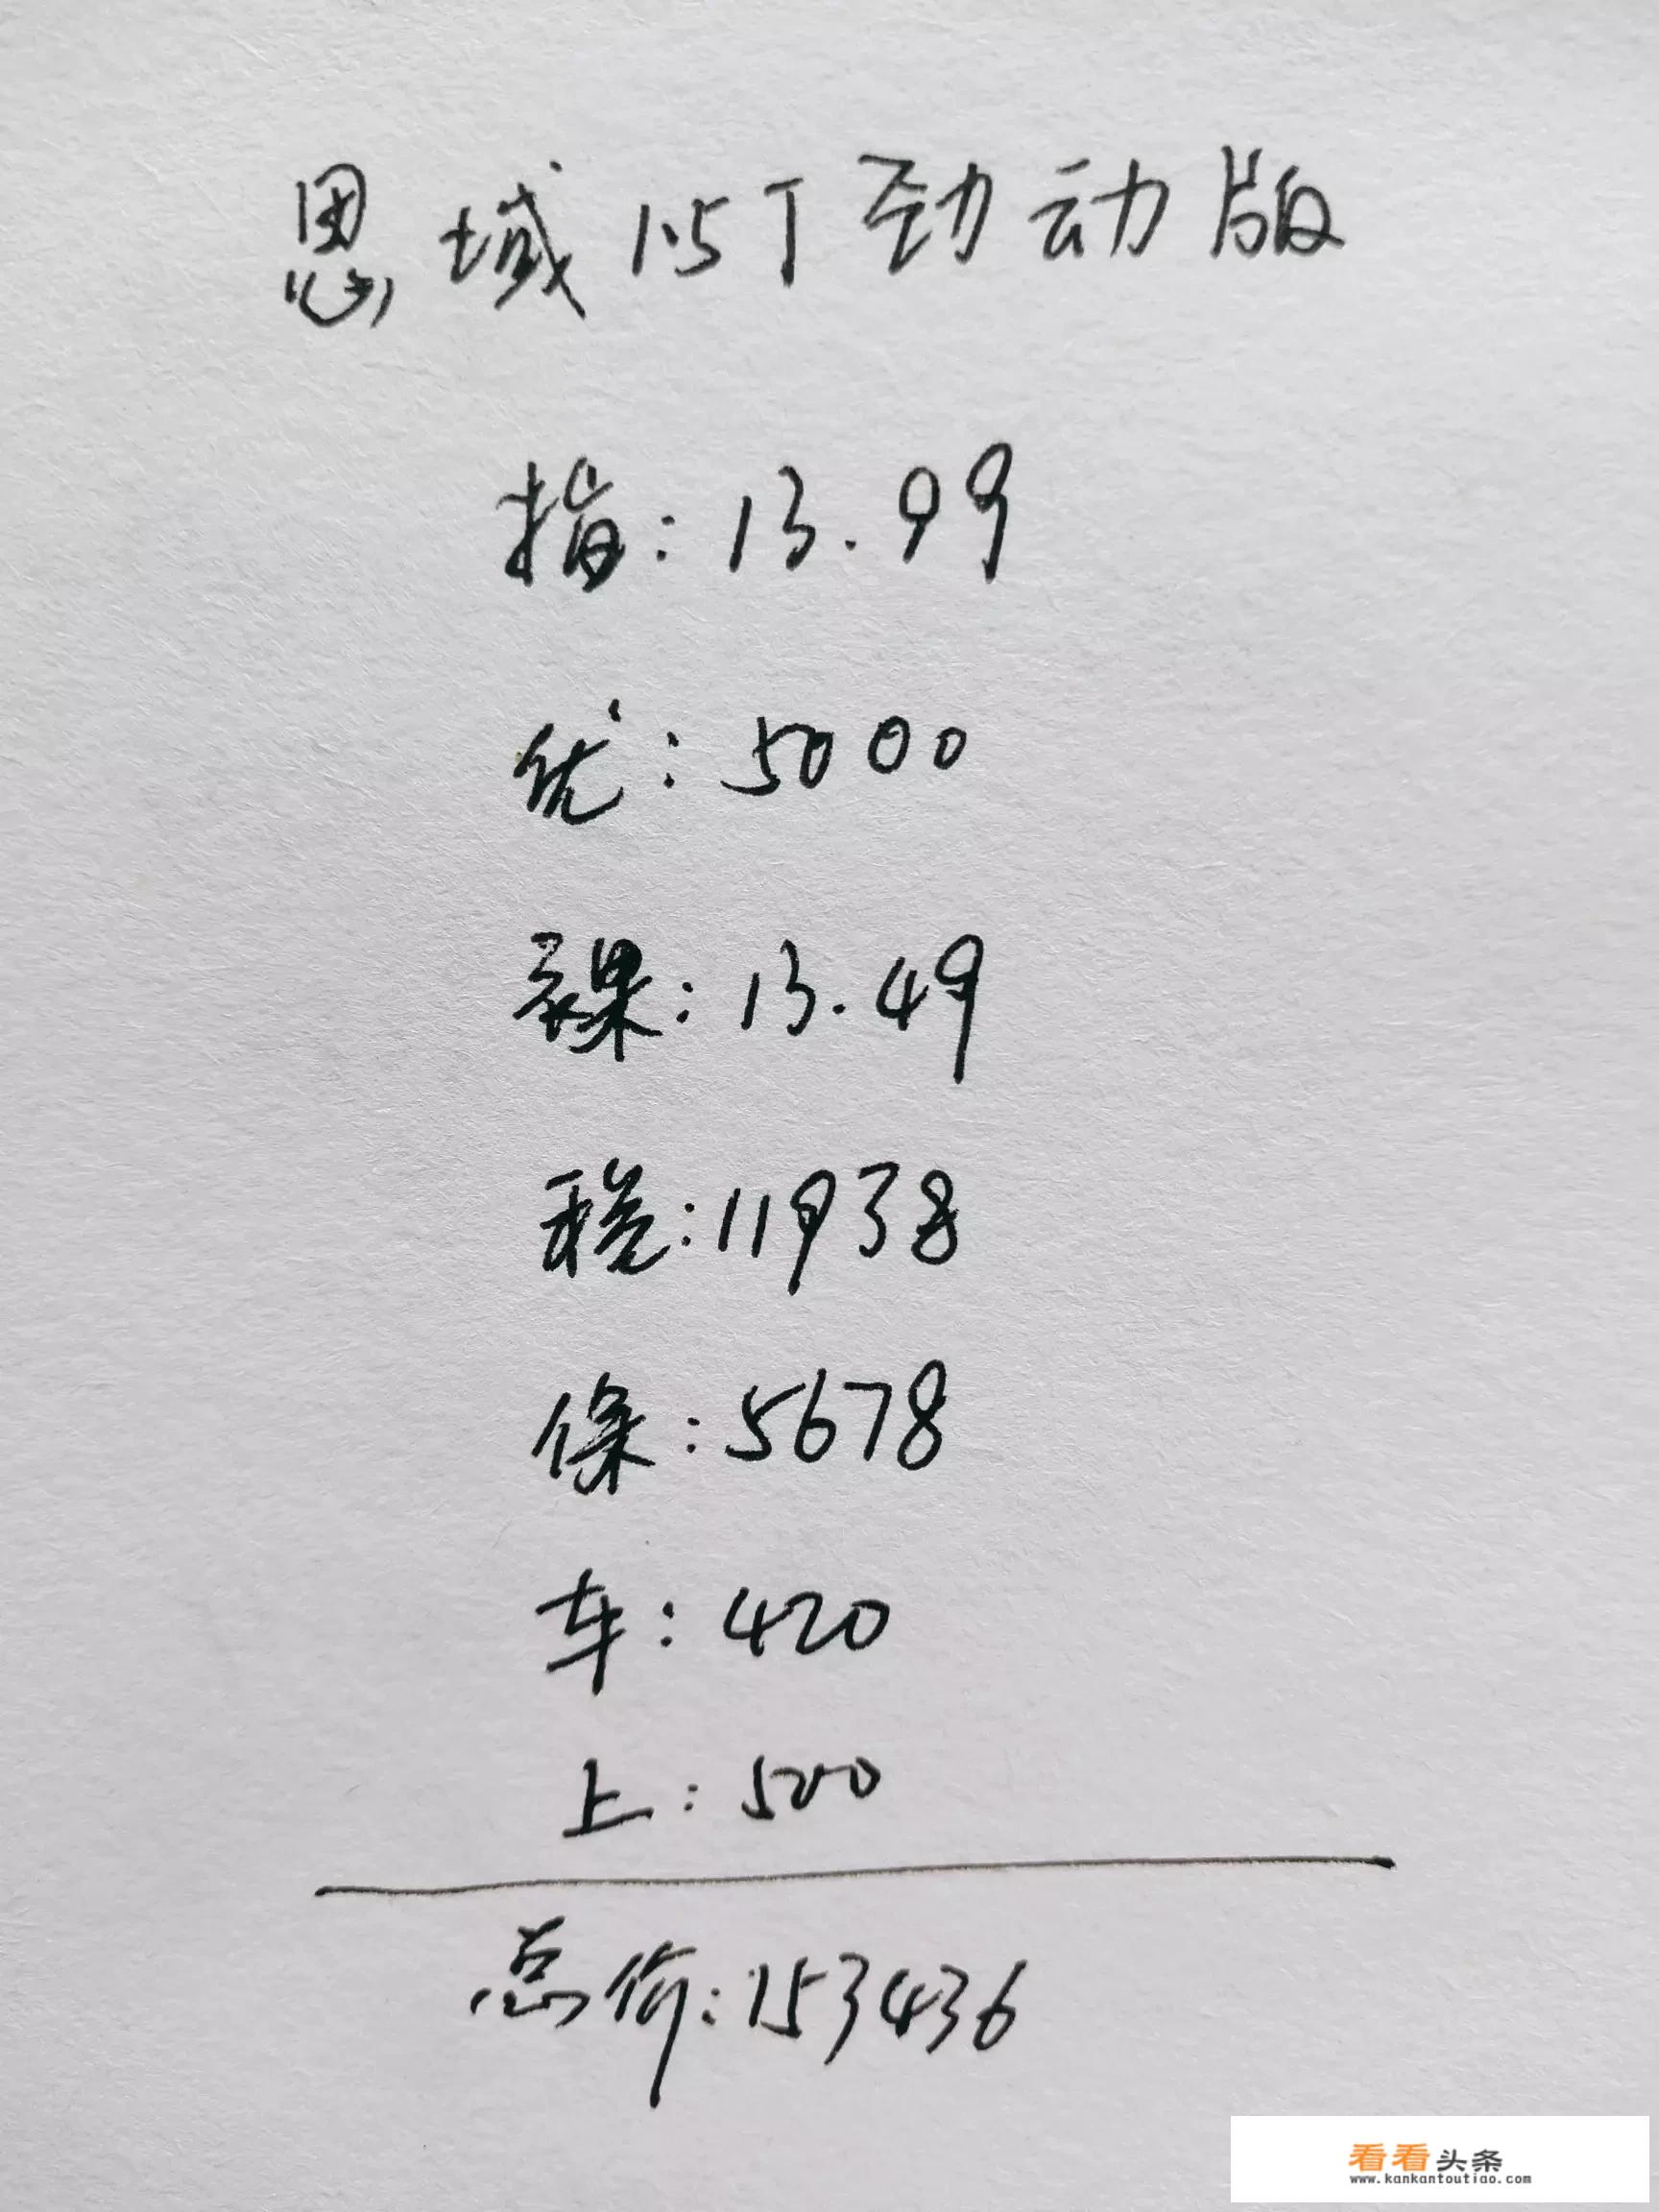 思域1.5T劲动版
指:13.99
优:5000
裸:13.49
税:11938
保:5678
车:420
上:500
总价:153436
看看头条
www.kankantoutiao.com